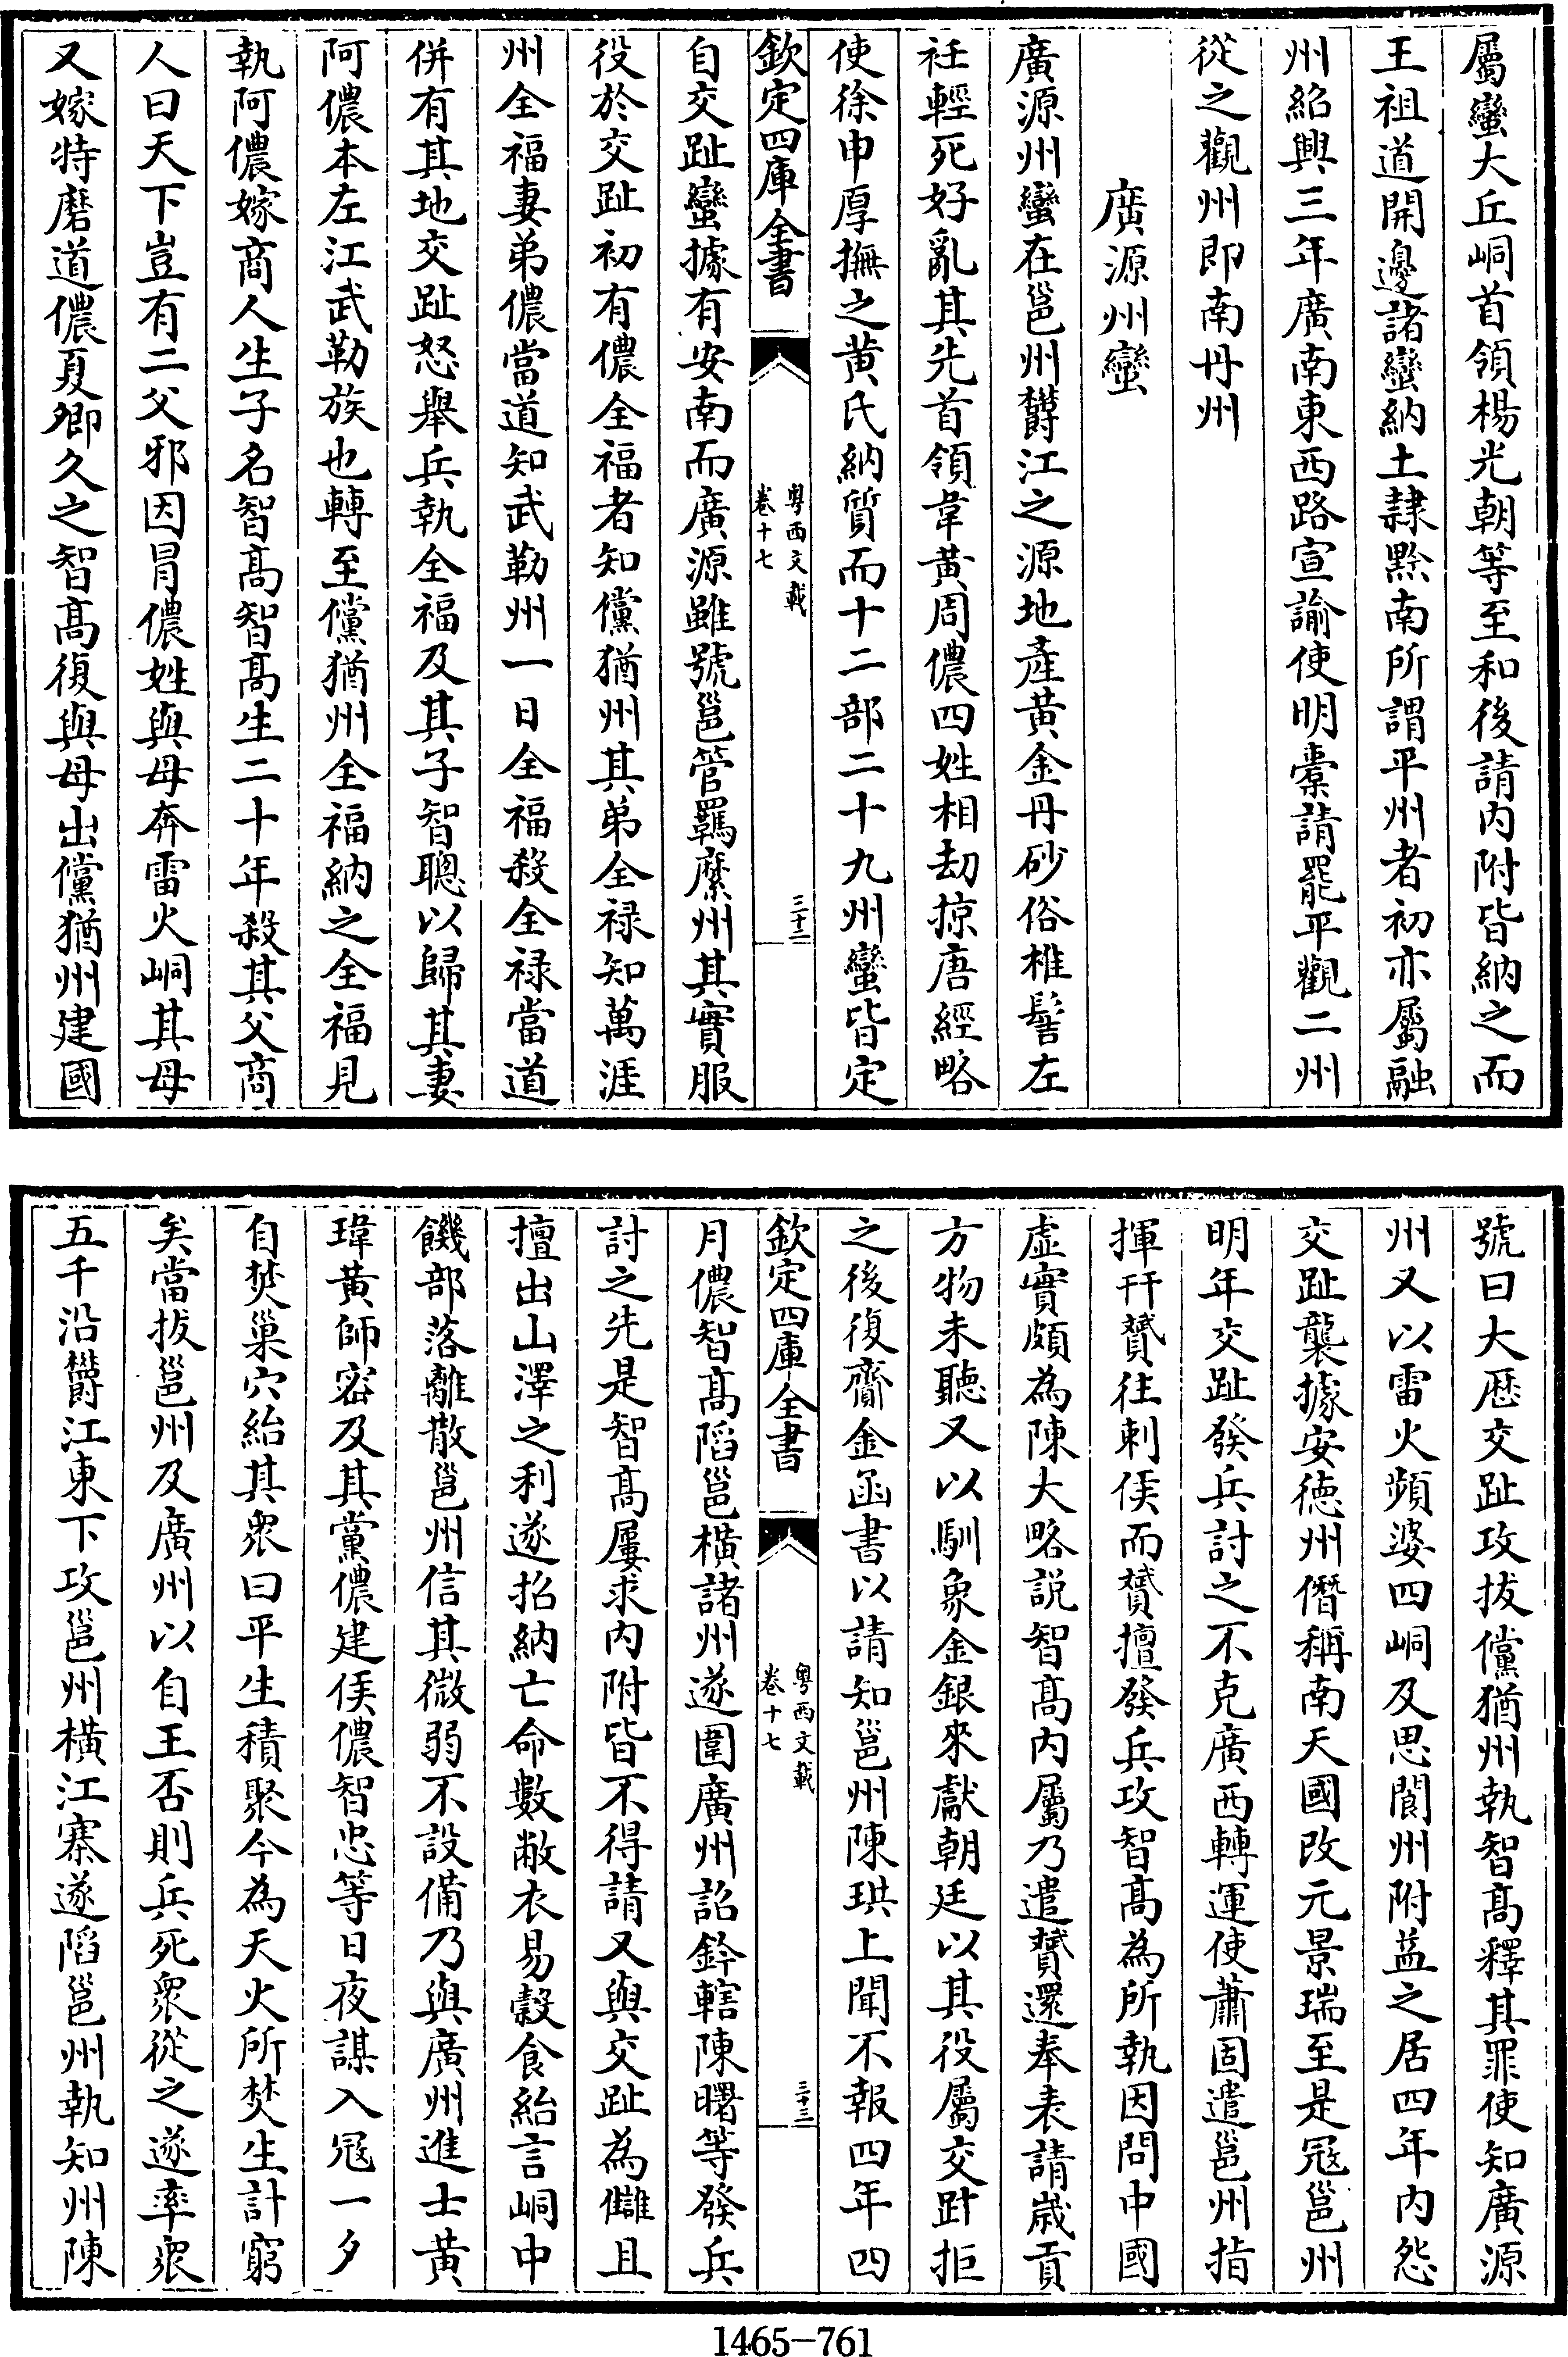 屬蠻大丘峒首領楊光朝等至和後請内附皆納之而
王祖道開邊諸蠻納土隸黔南所謂平州者初亦屬融
州紹興三年廣南東西路宣諭使明橐請罷平觀二州
從之觀州即南丹州
廣源州蠻
廣源州蠻在邕州欝江之源地產黄金丹砂俗椎髻左
衽輕死好亂其先首領韋黄周儂四姓相劫掠唐經略
使徐申厚撫之黄氏納質而十二部二十九州蠻皆定
欽定四庫全書
粤西文載
卷十七
三十二
自交趾蠻據有安南而廣源雖號邕管羈縻州其實服
役於交趾初有儂全福者知儻猶州其弟全禄知萬涯
州全福妻弟儂當道知武勒州一日全福殺全禄當道
併有其地交趾怒舉兵執全福及其子智聰以歸其妻
阿儂本左江武勒族也轉至儻猶州全福納之全福見
執阿儂嫁商人生子名智髙智髙生二十年殺其父商
人曰天下豈有二父邪因冐儂姓與母奔雷火峒其母
又嫁特磨道儂夏卿久之智髙復與母出儻猶州建國
號曰大厯交趾攻拔儻猶州執智髙釋其罪使知廣源
州又以雷火頻婆四峒及思閬州附益之居四年内怨
交趾襲據安徳州僭稱南天國改元景瑞至是冦邕州
明年交趾發兵討之不克廣西轉運使蕭固遣邕州指
揮亓贇往刺侯而贇擅發兵攻智髙為所執因問中國
虚實頗為陳大略説智髙内屬乃遣贇還奉表請嵗貢
方物未聽又以馴象金銀來獻朝廷以其役屬交趾拒
之後復齎金函書以請知邕州陳珙上聞不報四年四
欽定四庫全書
粤西文載
卷十七
三十三
月儂智髙陷邕橫諸州遂圍廣州詔鈐轄陳曙等發兵
討之先是智髙屢求内附皆不得請又與交趾為讎且
擅出山澤之利遂招納亡命數敝衣易穀食紿言峒中
饑部落離散邕州信其微弱不設備乃與廣州進士黄
瑋黄師宻及其黨儂建侯儂智忠等日夜謀入冦一夕
自焚巢穴紿其衆曰平生積聚今為天火所焚生計窮
矣當拔邕州及廣州以自王否則兵死衆從之遂率衆
五千沿欝江東下攻邕州橫江寨遂陷邕州執知州陳
1465-761